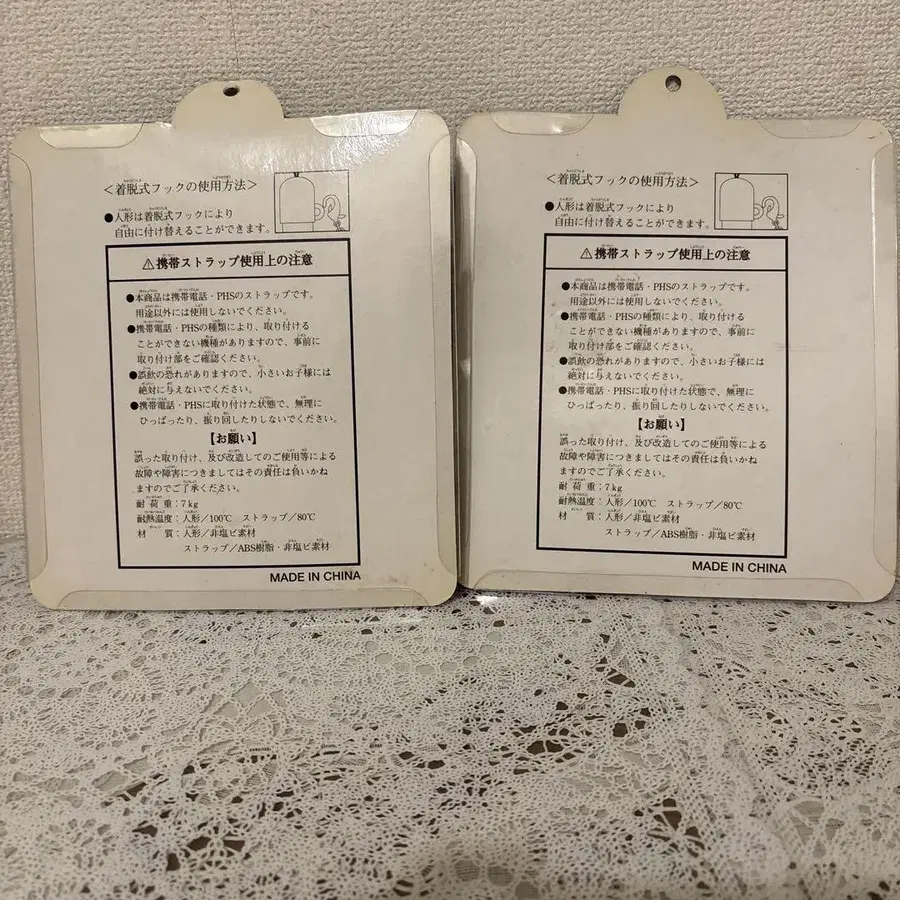 <着脱式フックの使用方法>
●人形は着脱式フックにより
自由に付け替えることができます。
⚠携帯ストラップ使用上の注意
●本商品は携帯電話・PHSのストラップです。
用途以外には使用しないでください。
●携帯電話・PHSの種類により、取り付ける
ことができない機種がありますので、事前に
取り付け部をご確認ください。
●誤飲の恐れがありますので、小さいお子様には
絶対に与えないでください。
●携帯電話・PHSに取り付けた状態で、無理に
ひっぱったり、振り回したりしないでください。
【お願い】
誤った取り付け、及び改造してのご使用等による
故障や障害につきましてはその責任は負いかね
ますのでご了承ください。
耐荷重:7kg
耐熱温度:人形/100℃ ストラップ/80℃
材質:人形/非塩ビ素材
ストラップ/ABS樹脂・非塩ビ素材
MADE IN CHINA
<着脱式フックの使用方法>
●人形は着脱式フックにより
自由に付け替えることができます。
⚠携帯ストラップ使用上の注意
●本商品は携帯電話・PHSのストラップです。
用途以外には使用しないでください。
●携帯電話・PHSの種類により、取り付ける
ことができない機種がありますので、事前に
取り付け部をご確認ください。
●誤飲の恐れがありますので、小さいお子様には
絶対に与えないでください。
●携帯電話・PHSに取り付けた状態で、無理に
ひっぱったり、振り回したりしないでください。
【お願い】
誤った取り付け、及び改造してのご使用等による
故障や障害につきましてはその責任は負いかね
ますのでご了承ください。
耐荷重:7kg
耐熱温度:人形/100℃ ストラップ/80℃
材質:人形/非塩ビ素材
ストラップ/ABS樹脂・非塩ビ素材
MADE IN CHINA